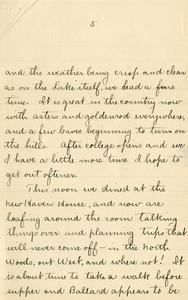 5
and the weather being crisp and clear
as on the Lake itself, we had a fine
time. It is great in the country now
with asters and goldenrod everywhere,
and a few leaves beginning to turn on
the hills. After college opens and we
have a little more time I hope to
get out oftener.
This noon we dined at the
new Haven House, and now are
loafing around the room talking
things over and planning trips that
will never come off – in the North
Woods, out West, and where not! It
is about time to take a walk before
supper and Ballard appears to be